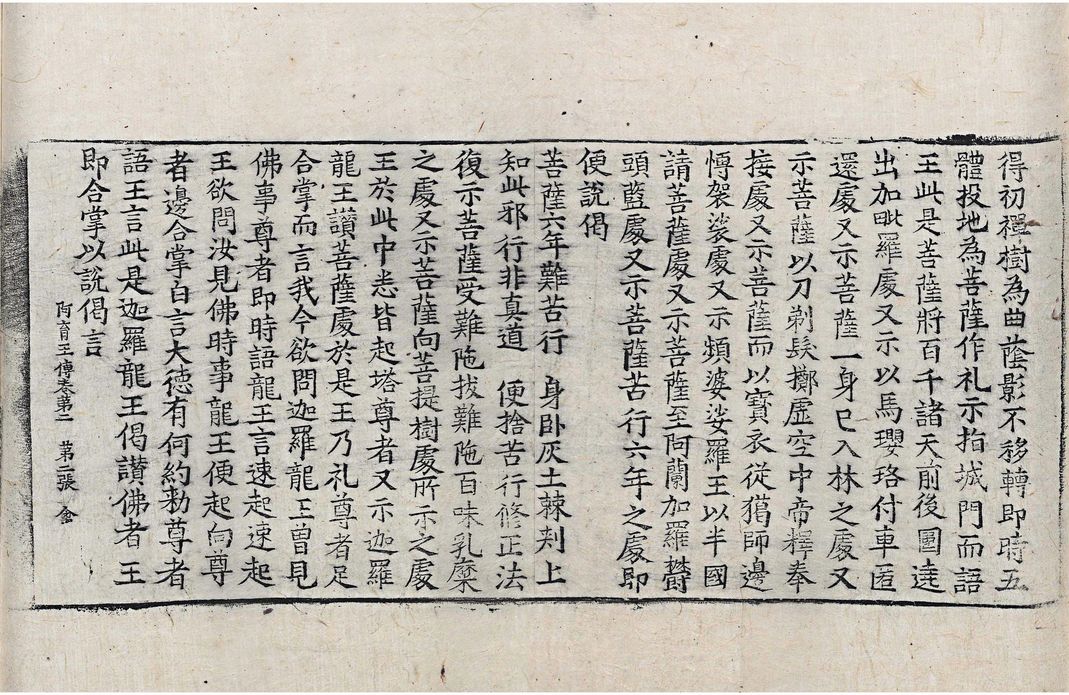 得初禪樹為曲蔭影不移轉即時五
體投地為菩薩作礼示指城門而語
王此是菩薩將百千諸天前後圍遶
出加毗羅處又示以馬瓔珞付車匿
還處又示菩薩一身已入林之處又
示菩薩以刀剃髮擲虛空中帝釋奉
接處又示菩薩而以寶衣從獵師邊
愽袈裟處又示頻婆娑羅王以半國
請菩薩處又示菩薩至阿蘭加羅欝
頭藍處又示菩薩苦行六年之處即
便說偈
菩薩六年難苦行　身卧灰土棘刺上
知此邪行非真道　便捨苦行修正法
復示菩薩受難陁拔難陁百味乳糜
之處又示菩薩向菩提樹處所示之處
王於此中悉皆起塔尊者又示迦羅
龍王讃菩薩處於是王乃礼尊者足
合掌而言我今欲問迦羅龍王曾見
佛事尊者即時語龍王言速起速起
王欲問汝見佛時事龍王便起向尊
者邊合掌白言大德有何約勑尊者
語王言此是迦羅龍王偈讃佛者王
即合掌以說偈言
阿育王傳卷第二　第二張　金